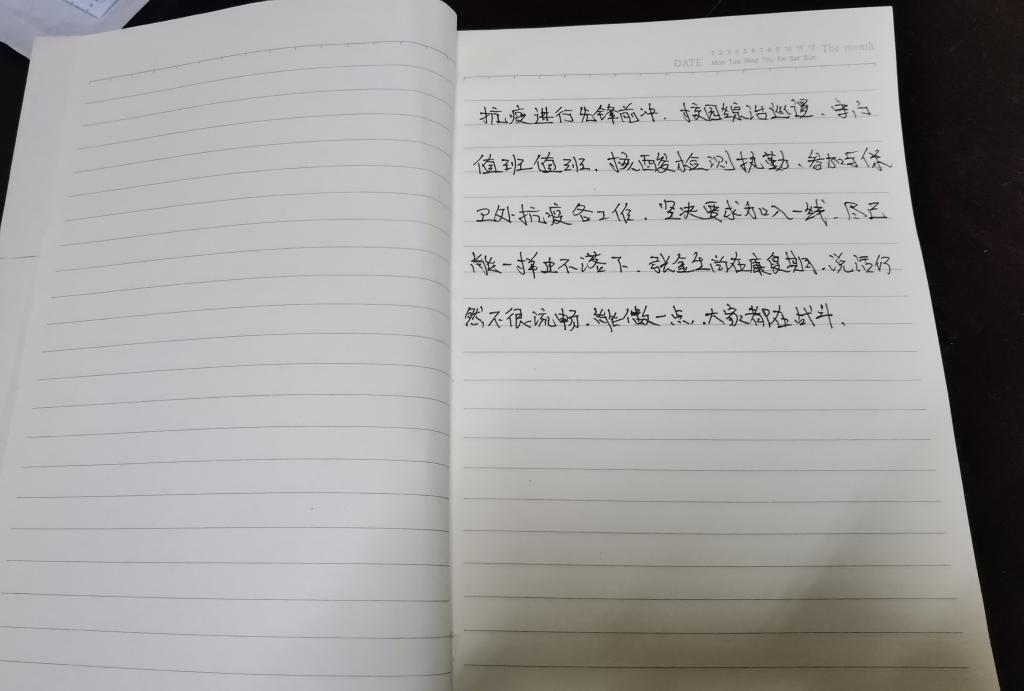 1 2 3 4 5 6 7 8 9 10 11 12 The month
DATE Mon Tue Wed Thu Fri Sat Sun
抗疫进行先锋前冲，校园综治巡逻、守门
值班值班，核酸检测执勤、参加与保
卫处抗疫各工作，坚决要求加入一线，尽己
能一样也不落下，张金生尚在康复期，说话仍
然不很流畅，能做一点，大家都在战斗，